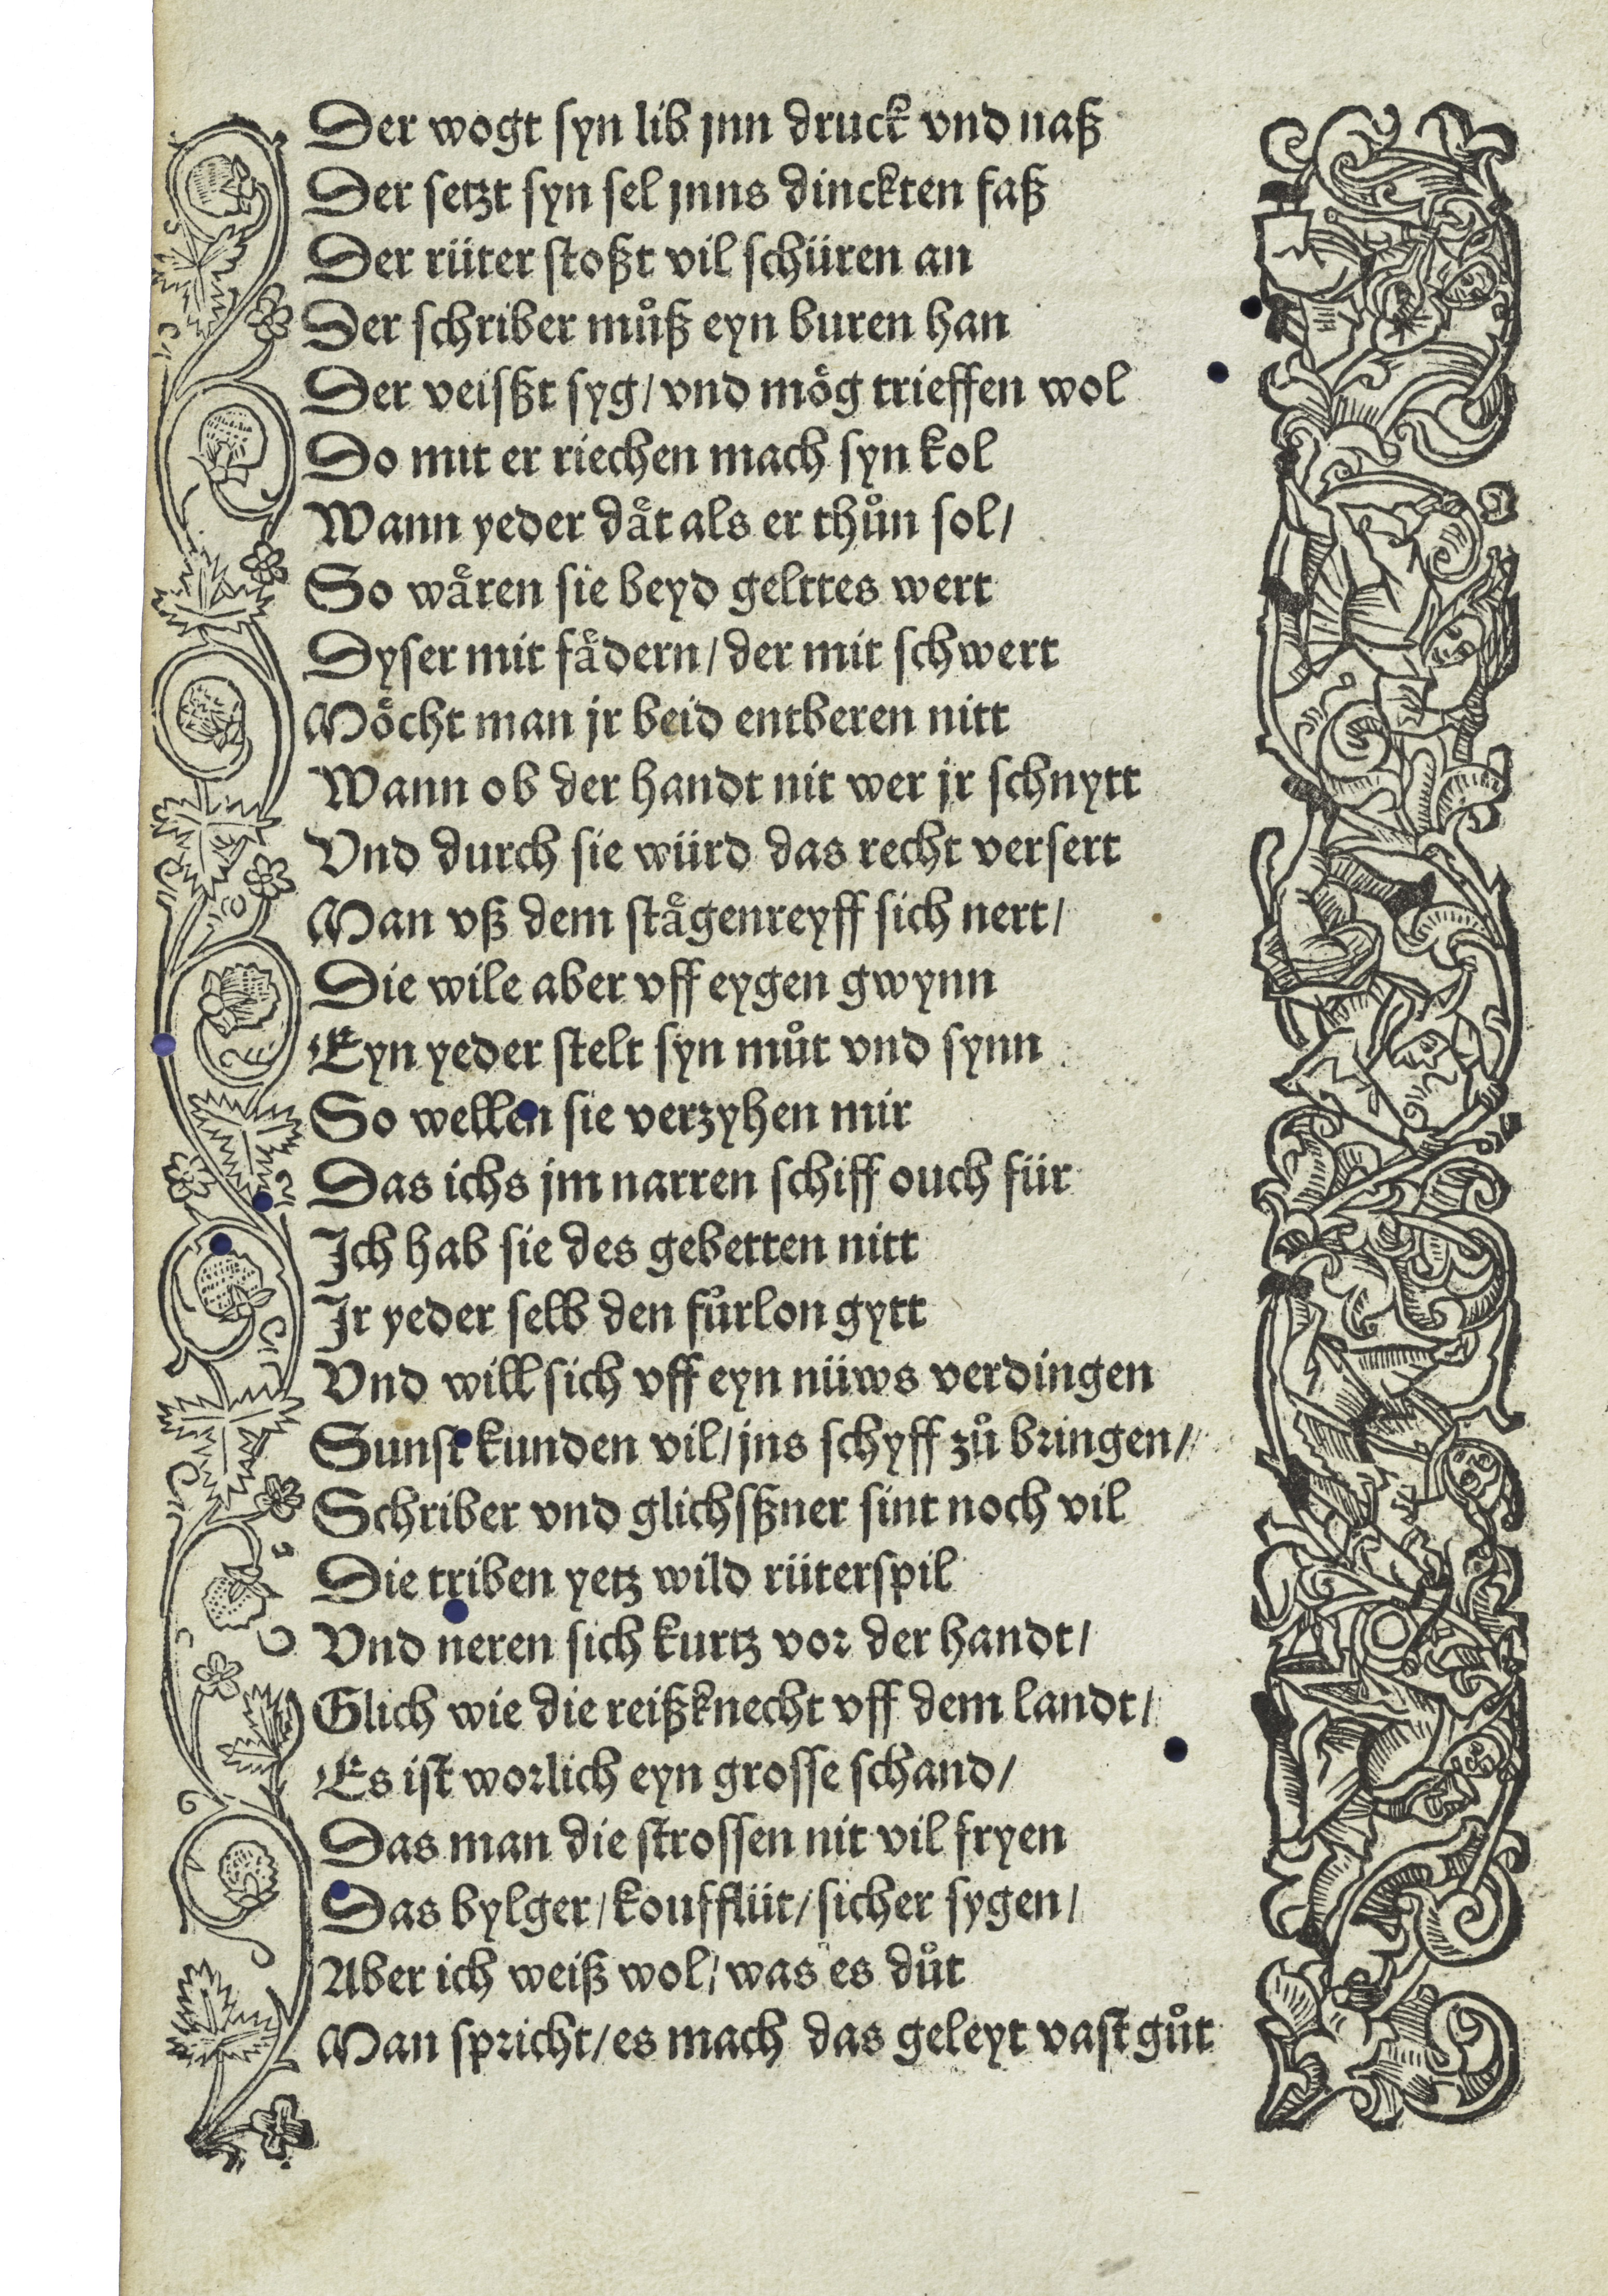 Der wogt syn lib jnn druck vnd naß
Der setzt syn sel jnns dinckten faß
Der rüter stoßt vil schüren an
Der schriber můß eyn buren han
Der veisßt syg/ vnd moͤg trieffen wol
Do mit er riechen mach syn kol
Wann yeder daͤt als er thůn sol/
So waͤren sie beyd gelttes wert
Dyser mit faͤdern/ der mit schwert
Moͤcht man jr beid entberen nitt
Wann ob der handt nit wer jr schnytt
Vnd durch sie würd das recht versert
Man vß dem staͤgenreyff sich nert/
Die wile aber vff eygen gwynn
Eyn yeder stelt syn můt vnd synn
So wellen sie verzyhen mir
Das ichs jm narren schiff ouch für
Ich hab sie des gebetten nitt
Ir yeder selb den fůrlon gytt
Vnd will sich vff eyn nüws verdingen
Sunst kunden vil/ jns schyff zů bringen/
Schriber vnd glichsßner sint noch vil
Die triben yetz wild rüterspil
Vnd neren sich kurtz vor der handt/
Glich wie die reißknecht vff dem landt/
Es ist worlich eyn grosse schand/
Das man die strossen nit vil fryen
Das bylger/ koufflüt/ sicher sygen/
Aber ich weiß wol/ was es důt
Man spricht/ es mach das geleyt vast gůt